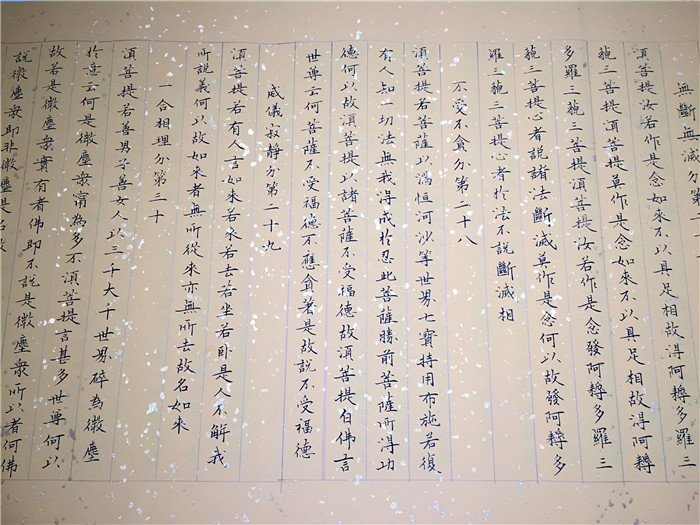 無斷無滅分第二十
湏菩提汝若作是念如來不以具足相故得阿耨多羅三
藐三菩提湏菩提莫作是念如來不以具足相故得阿耨
多羅三藐三菩提湏菩提汝若作是念發阿耨多羅三
藐三菩提心者說諸法斷滅莫作是念何以故發阿耨多
羅三藐三菩提心者於法不說斷滅相
不受不貪分第二十八
湏菩提若菩薩以滿恒河沙等世界七寶持用布施若復
有人知一切法無我得成於忍此菩薩勝前菩薩所得功
德何以故湏菩提以諸菩薩不受福德故湏菩提白佛言
世尊云何菩薩不受福德不應貪著是故說不受福德
威儀寂靜分第二十九
湏菩提若有人言如來若來若去若坐若卧是人不解我
所說義何以故如來者無所從來亦無所去故名如來
一合相理分第三十
湏菩提若善男子善女人以三千大千世界碎為微塵
於意云何是微塵衆寧為多不湏菩提言甚多世尊何以
故若是微塵衆實有者佛即不說是微塵衆所以者何佛
說微塵衆即非微塵是名